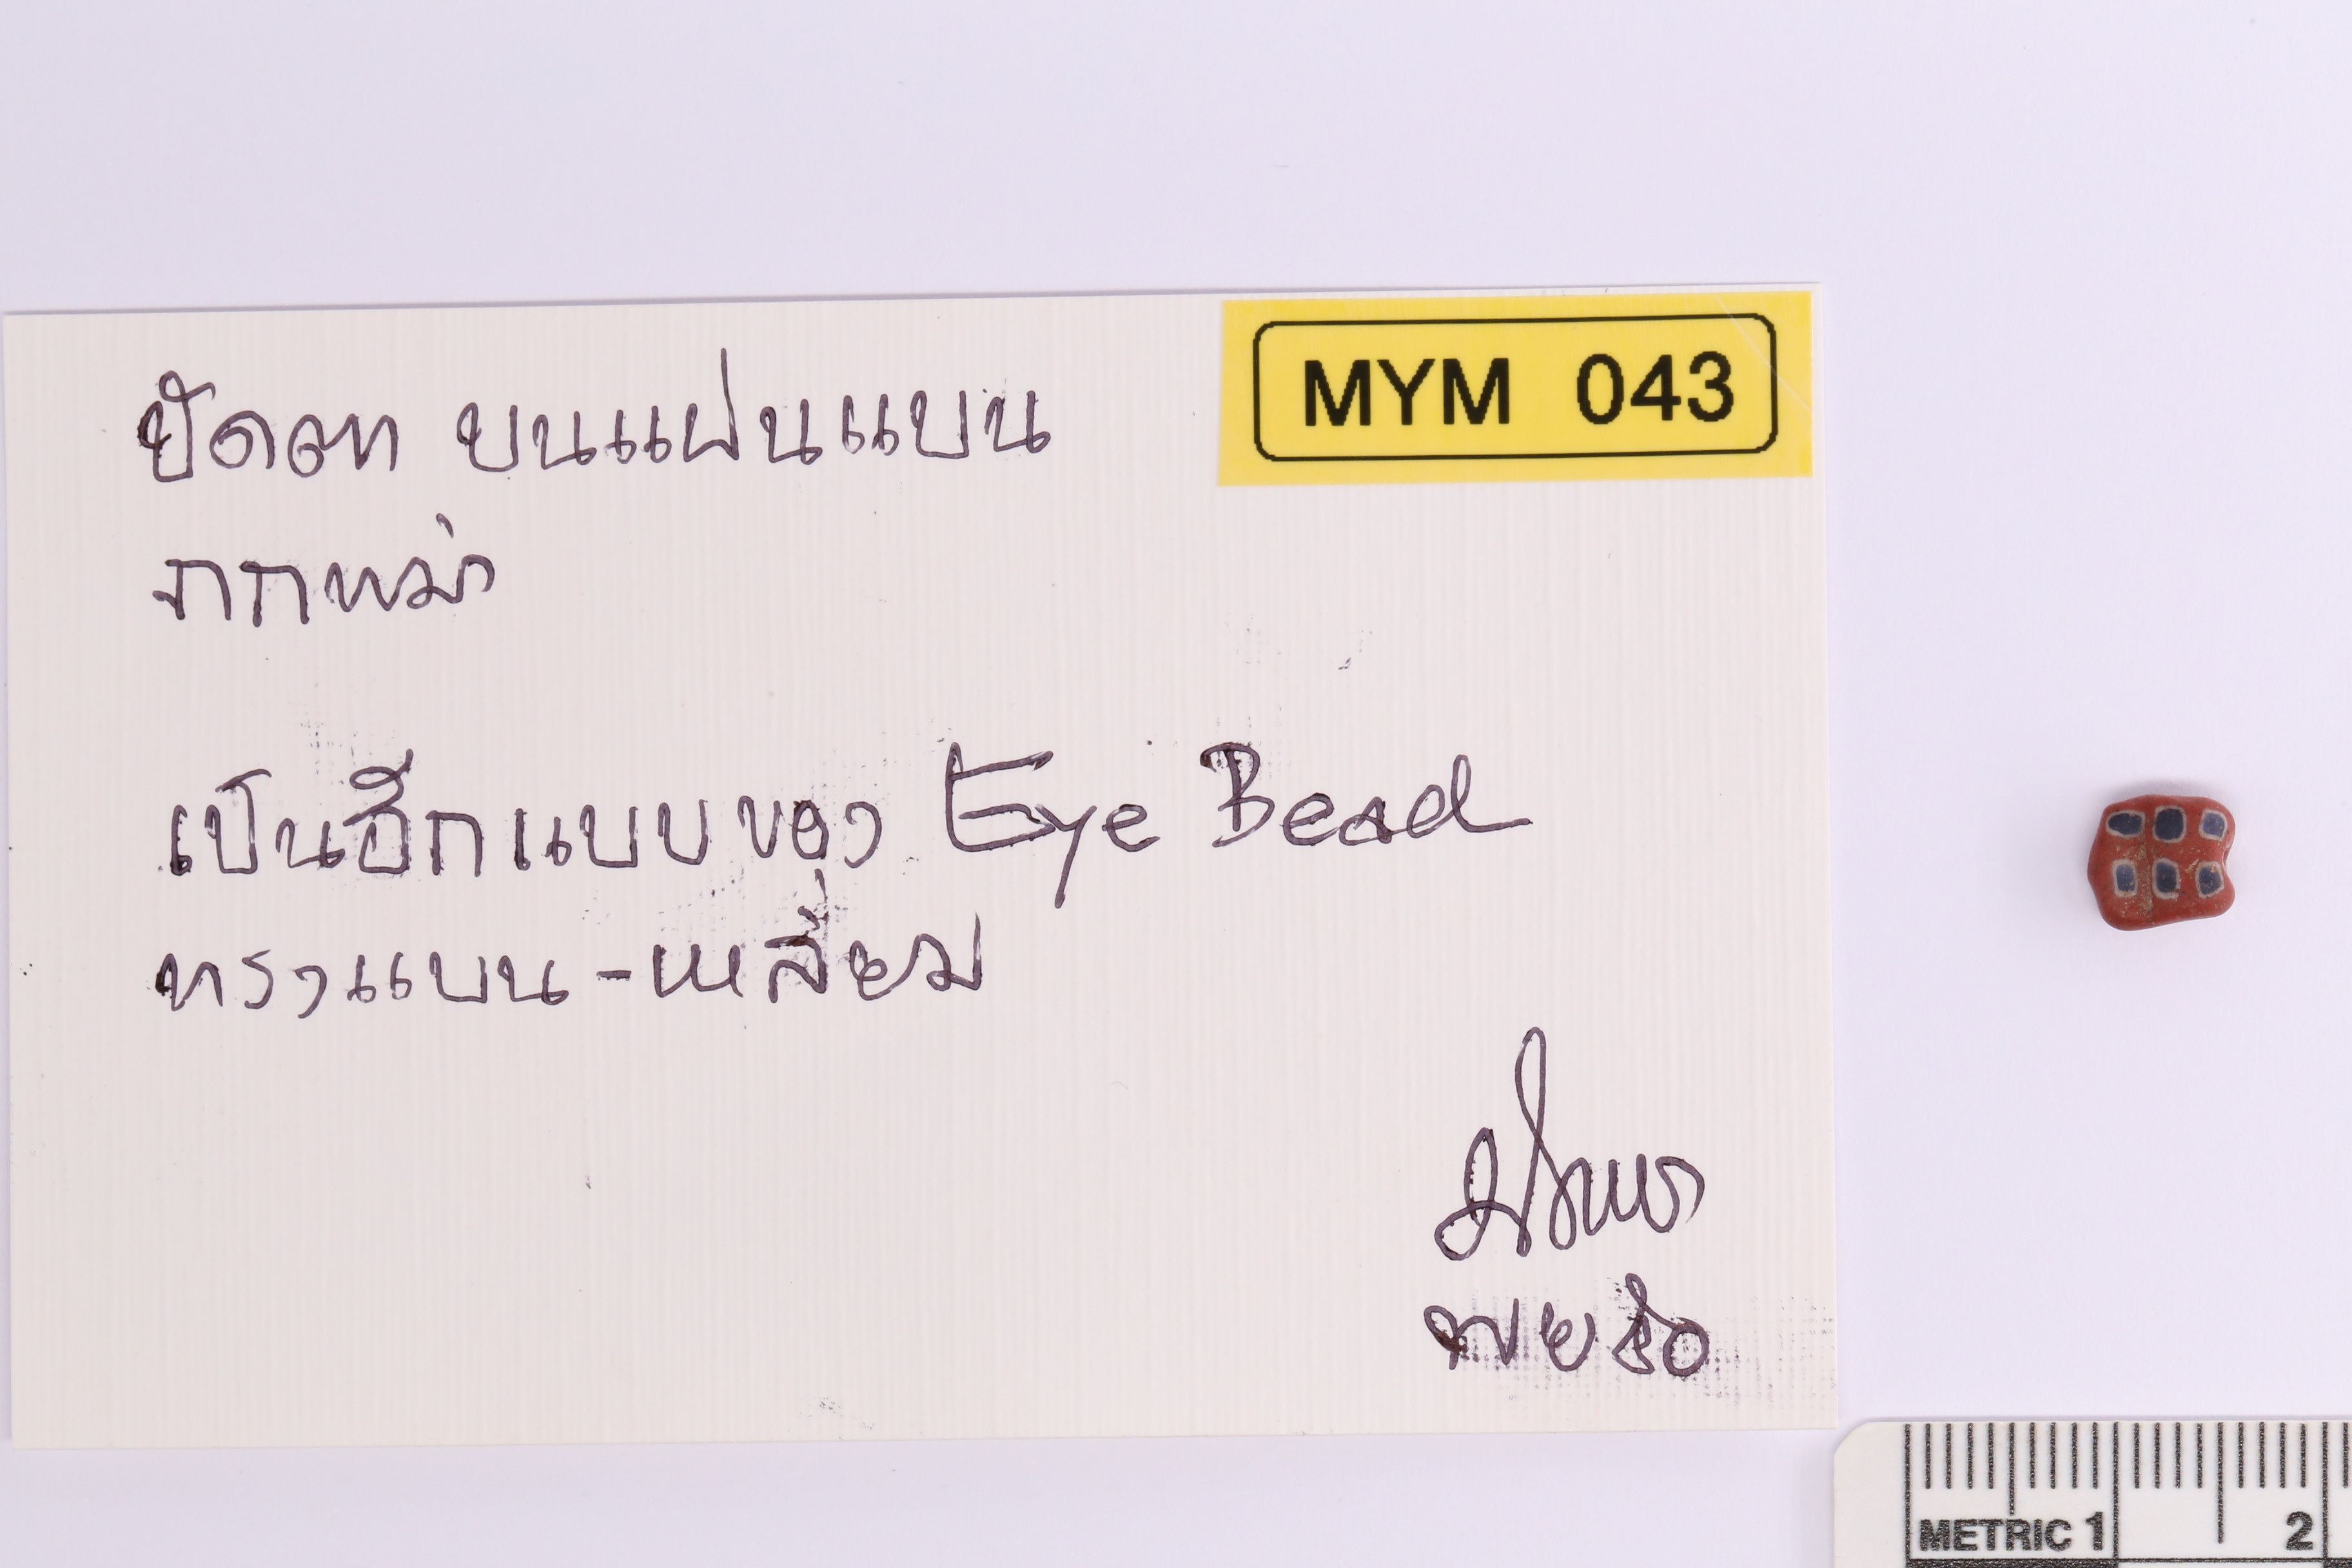 MYM 043
ปัดตา บนแผ่นแบน
จากพม่า
เป็นอีกแบบของ Eye Bead
ทรงแบน-เหลี่ยม
METRIC 1 2